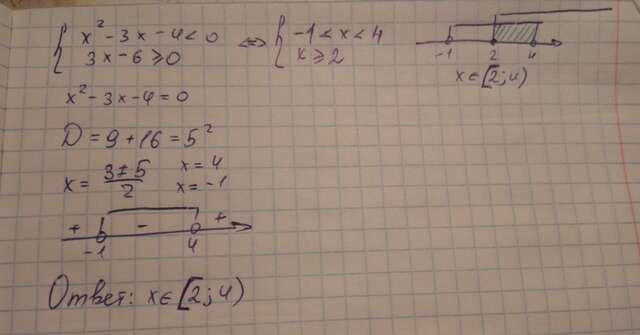 { x² - 3x - 4 < 0 ⇔ { -1 < x < 4
{ 3x - 6 ≥ 0 { x ≥ 2
-1 2 4
x ∈ [2; 4)
x² - 3x - 4 = 0
D = 9 + 16 = 5²
x = (3 ± 5)/2 x = 4
x = -1
+ - +
-1 4
Ответ: x ∈ [2; 4)